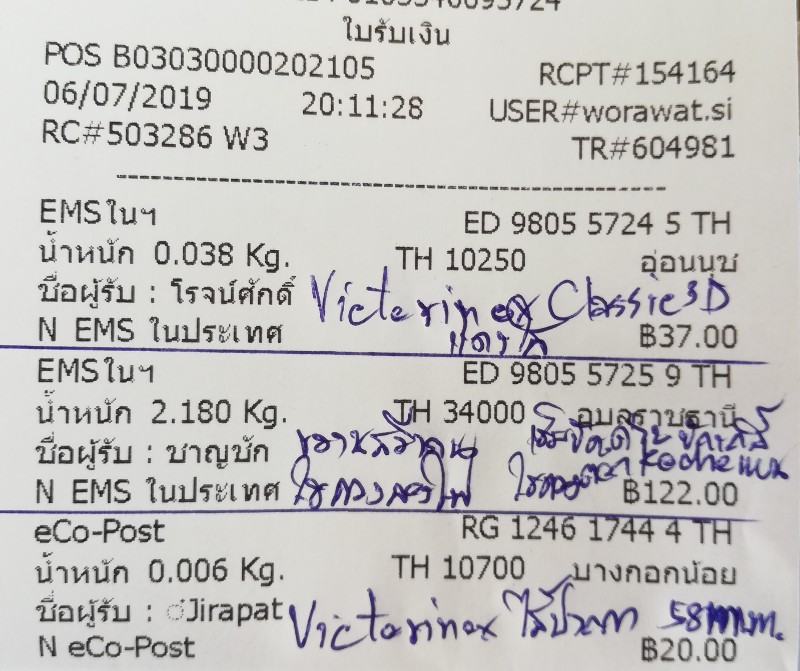 ใบรับเงิน
POS B03030000202105 RCPT#154164
06/07/2019 20:11:28 USER#worawat.si
RC#503286 W3 TR#604981
EMSในฯ ED 9805 5724 5 TH
น้ำหนัก 0.038 Kg. TH 10250 อ่อนนุช
ชื่อผู้รับ : โรจน์ศักดิ์ Victorinox Classic SD
N EMS ในประเทศ ฿37.00
EMSในฯ ED 9805 5725 9 TH
น้ำหนัก 2.180 Kg. TH 34000 อุบลราชธานี
ชื่อผู้รับ : ชาญชัก
N EMS ในประเทศ ฿122.00
eCo-Post RG 1246 1744 4 TH
น้ำหนัก 0.006 Kg. TH 10700 บางกอกน้อย
ชื่อผู้รับ : ํJirapat Victorinox 58 mm.
N eCo-Post ฿20.00